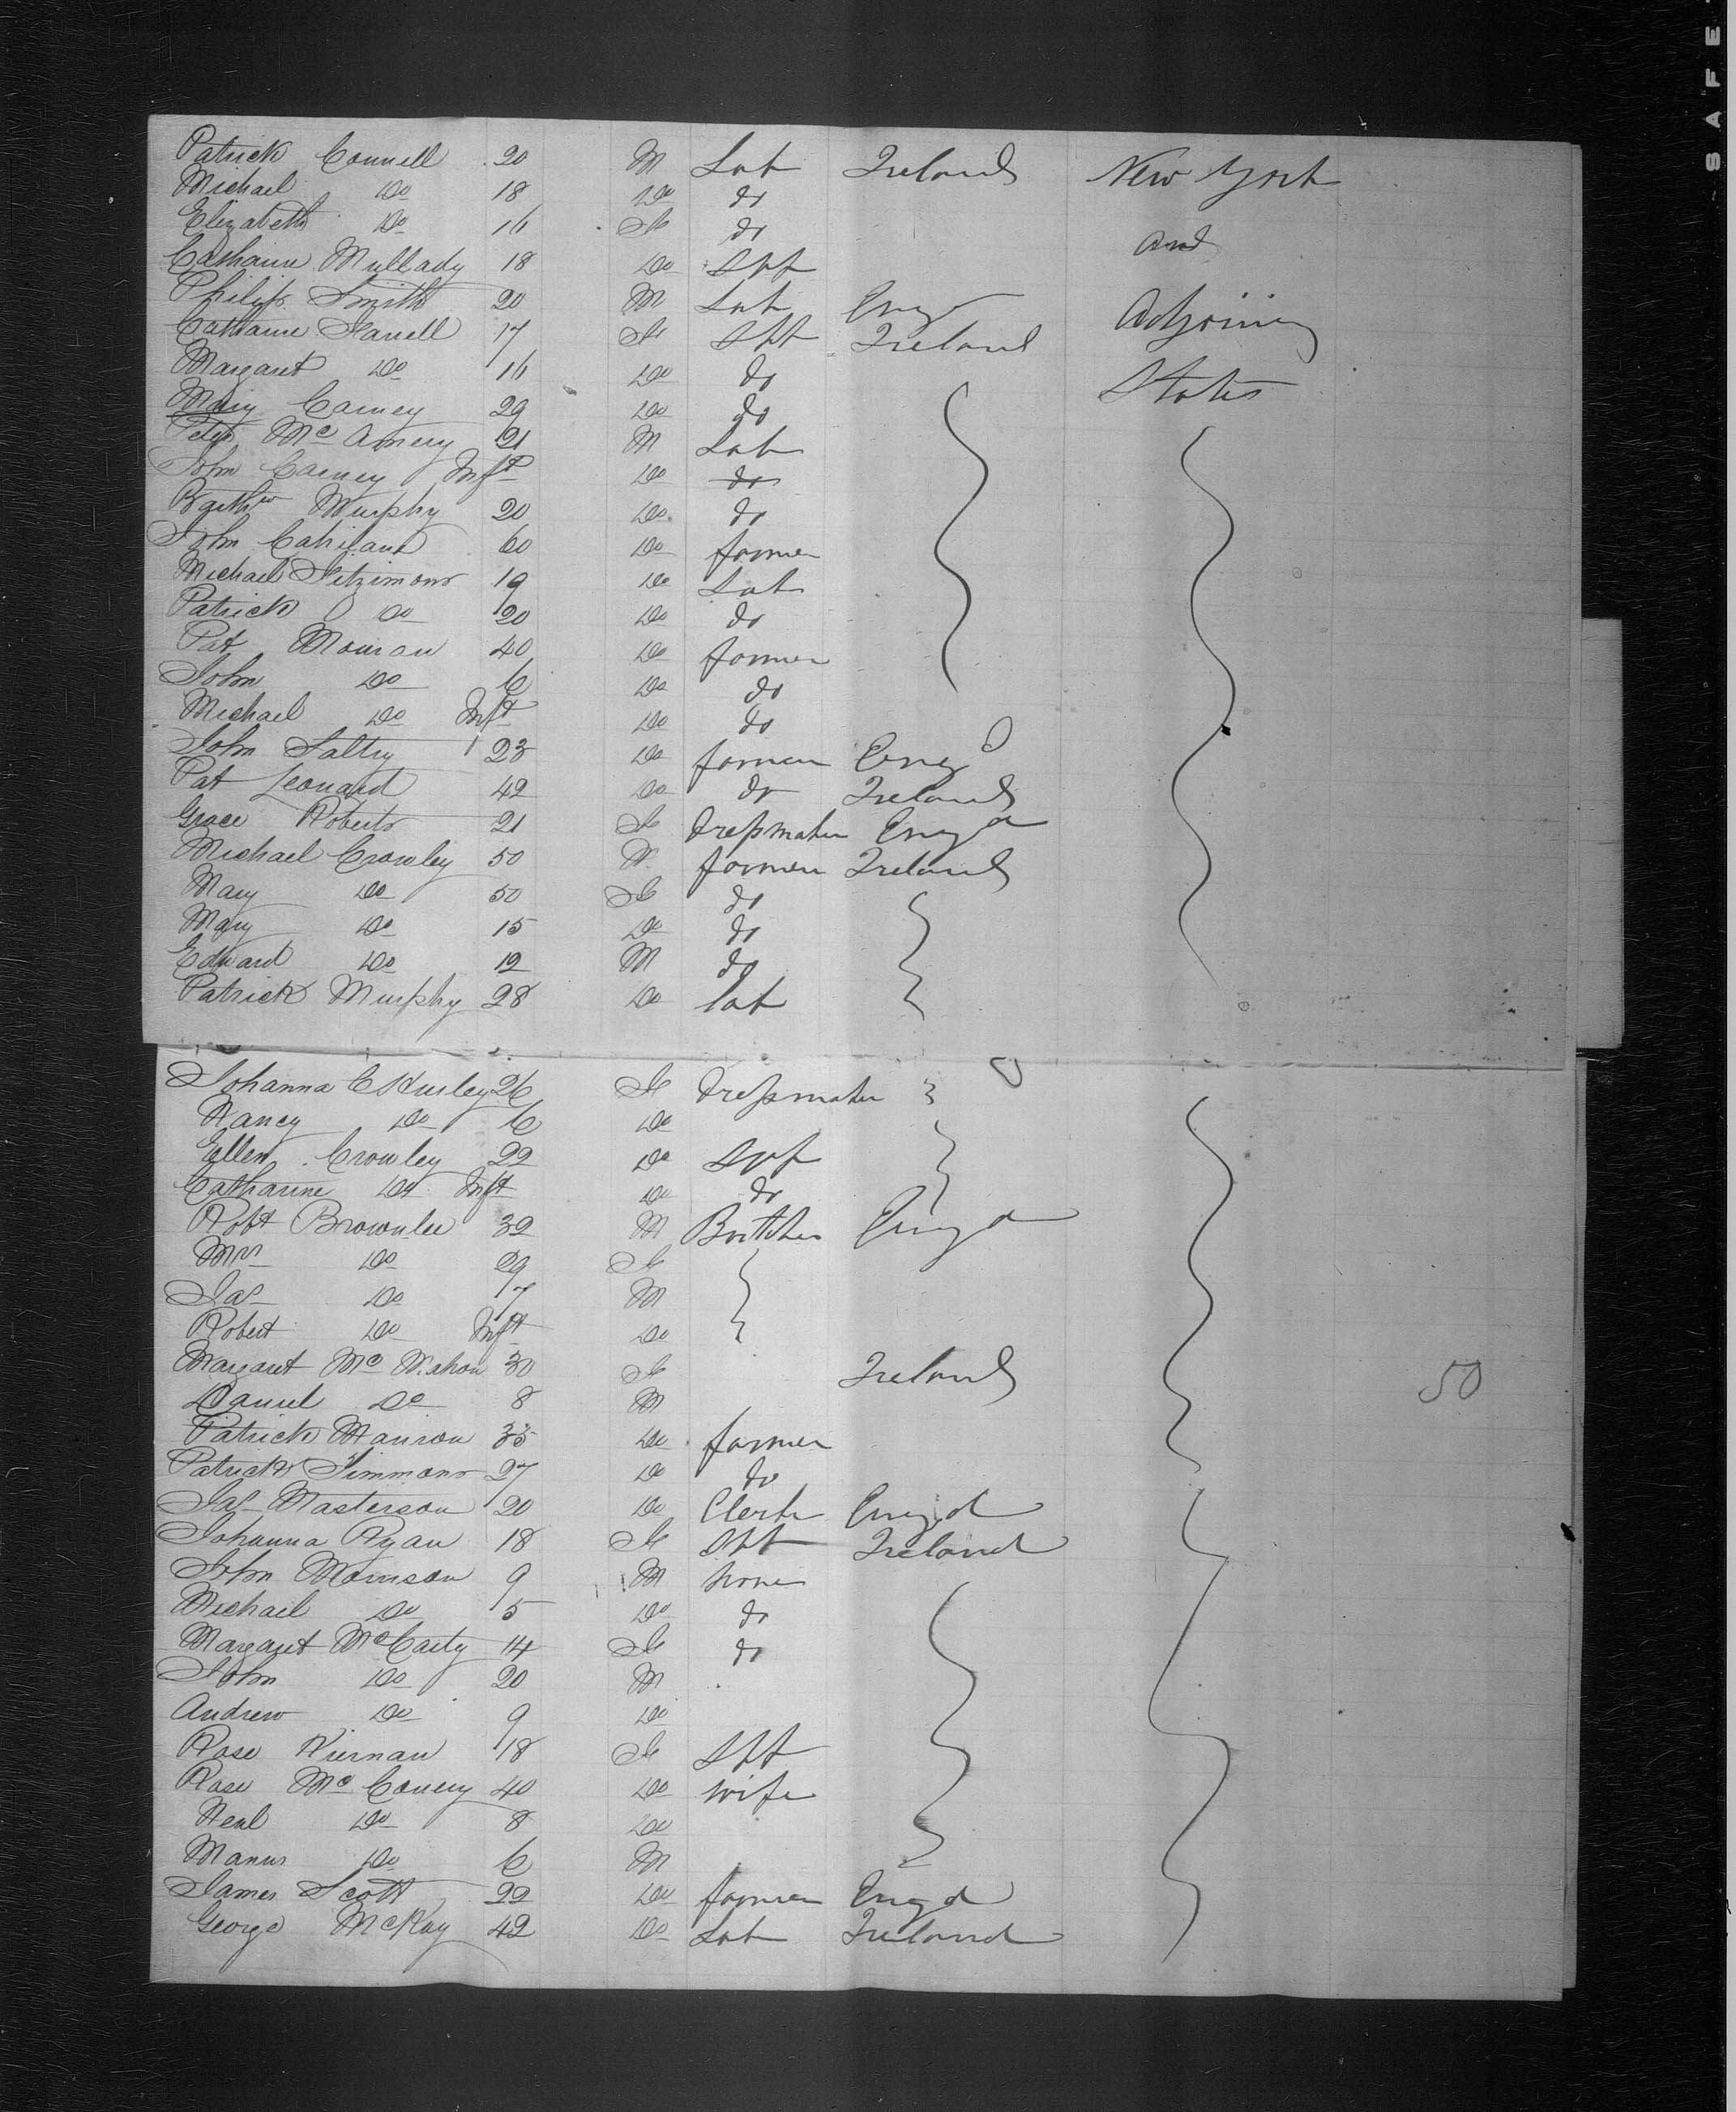 Patrick Connell 20 M Lab Ireland New York
Michael Do 18 Do do
Elizabeth Do 16 F do and
Catharine Mullady 18 Do Spt
Philip Smith 20 M Lab Eng Adjoining
Catharine Farrell 17 F Spt Ireland
Margaret Do 16 Do do States
Mary Carney 29 Do do
Peter Mc 21 M Lab
John Carney Inft Do do
Barthw Murphy 20 Do do
John 60 Do farmer
Michael Fitzimons 19 Do Lab
Patrick Do 20 Do do
Pat 40 Do farmer
John Do 6 Do do
Michael Do Inft Do do
John 23 Do farmer Eng
Pat Leonard 42 Do do Ireland
Grace Roberts 21 F Dressmaker Engd
Michael Crowley 50 M farmer Ireland
Mary Do 50 F do
Mary Do 15 Do do
Edward Do 12 M do
Patrick Murphy 28 Do lab
Johanna 26 F Dressmaker
Nancy Do 6 Do
Ellen Crowley 22 Do Spt
Catharine Do Inft Do do
Robt Brownlee 32 M Butcher Engd
Mrs Do 29 F
Jas Do 7 M
Robert Do Inft Do
Margaret Mc Mahon 30 F Ireland
Daniel Do 8 M 50
Patrick 35 Do farmer
Patrick Simmons 27 Do do
Jas Masterson 20 Do Clerk Engd
Johanna Ryan 18 F Spt Ireland
John Morrison 9 M none
Michael Do 5 Do do
Margaret McCarty 14 F do
John Do 20 M
Andrew Do 9 Do
Rose Kiernan 18 F Spt
Rose Mc 40 Do wife
Do 8 Do
Manus Do 6 M
James Scott 22 Do farmer Engd
George McKay 42 Do Lab Ireland
SAFE